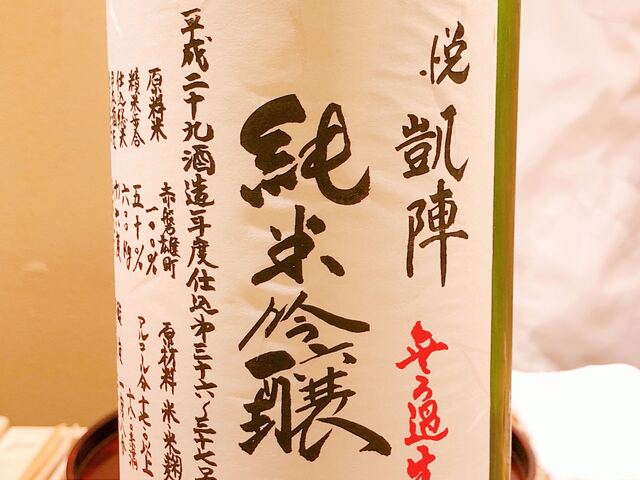 悦凱陣
無ろ過生
純米吟醸
平成二十九酒造年度仕込第三十六、三十七号
原料米 赤磐雄町 一〇〇%
精米歩合 五十%
原材料 米・米麹
アルコール分 十七以上